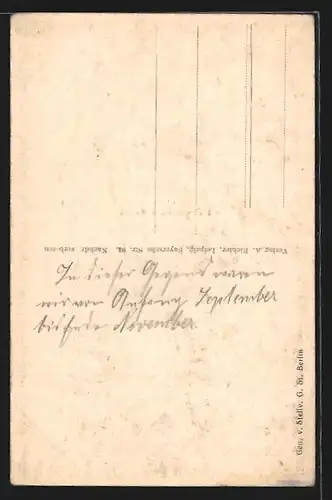 Verlag A. Richter, Leipzig, Bayersche Str. 91. Nachdr. verboten
In dieser Gegend waren
wir von Anfang September
bis Ende November.
Gen. v. Stellv. G. St. Berlin